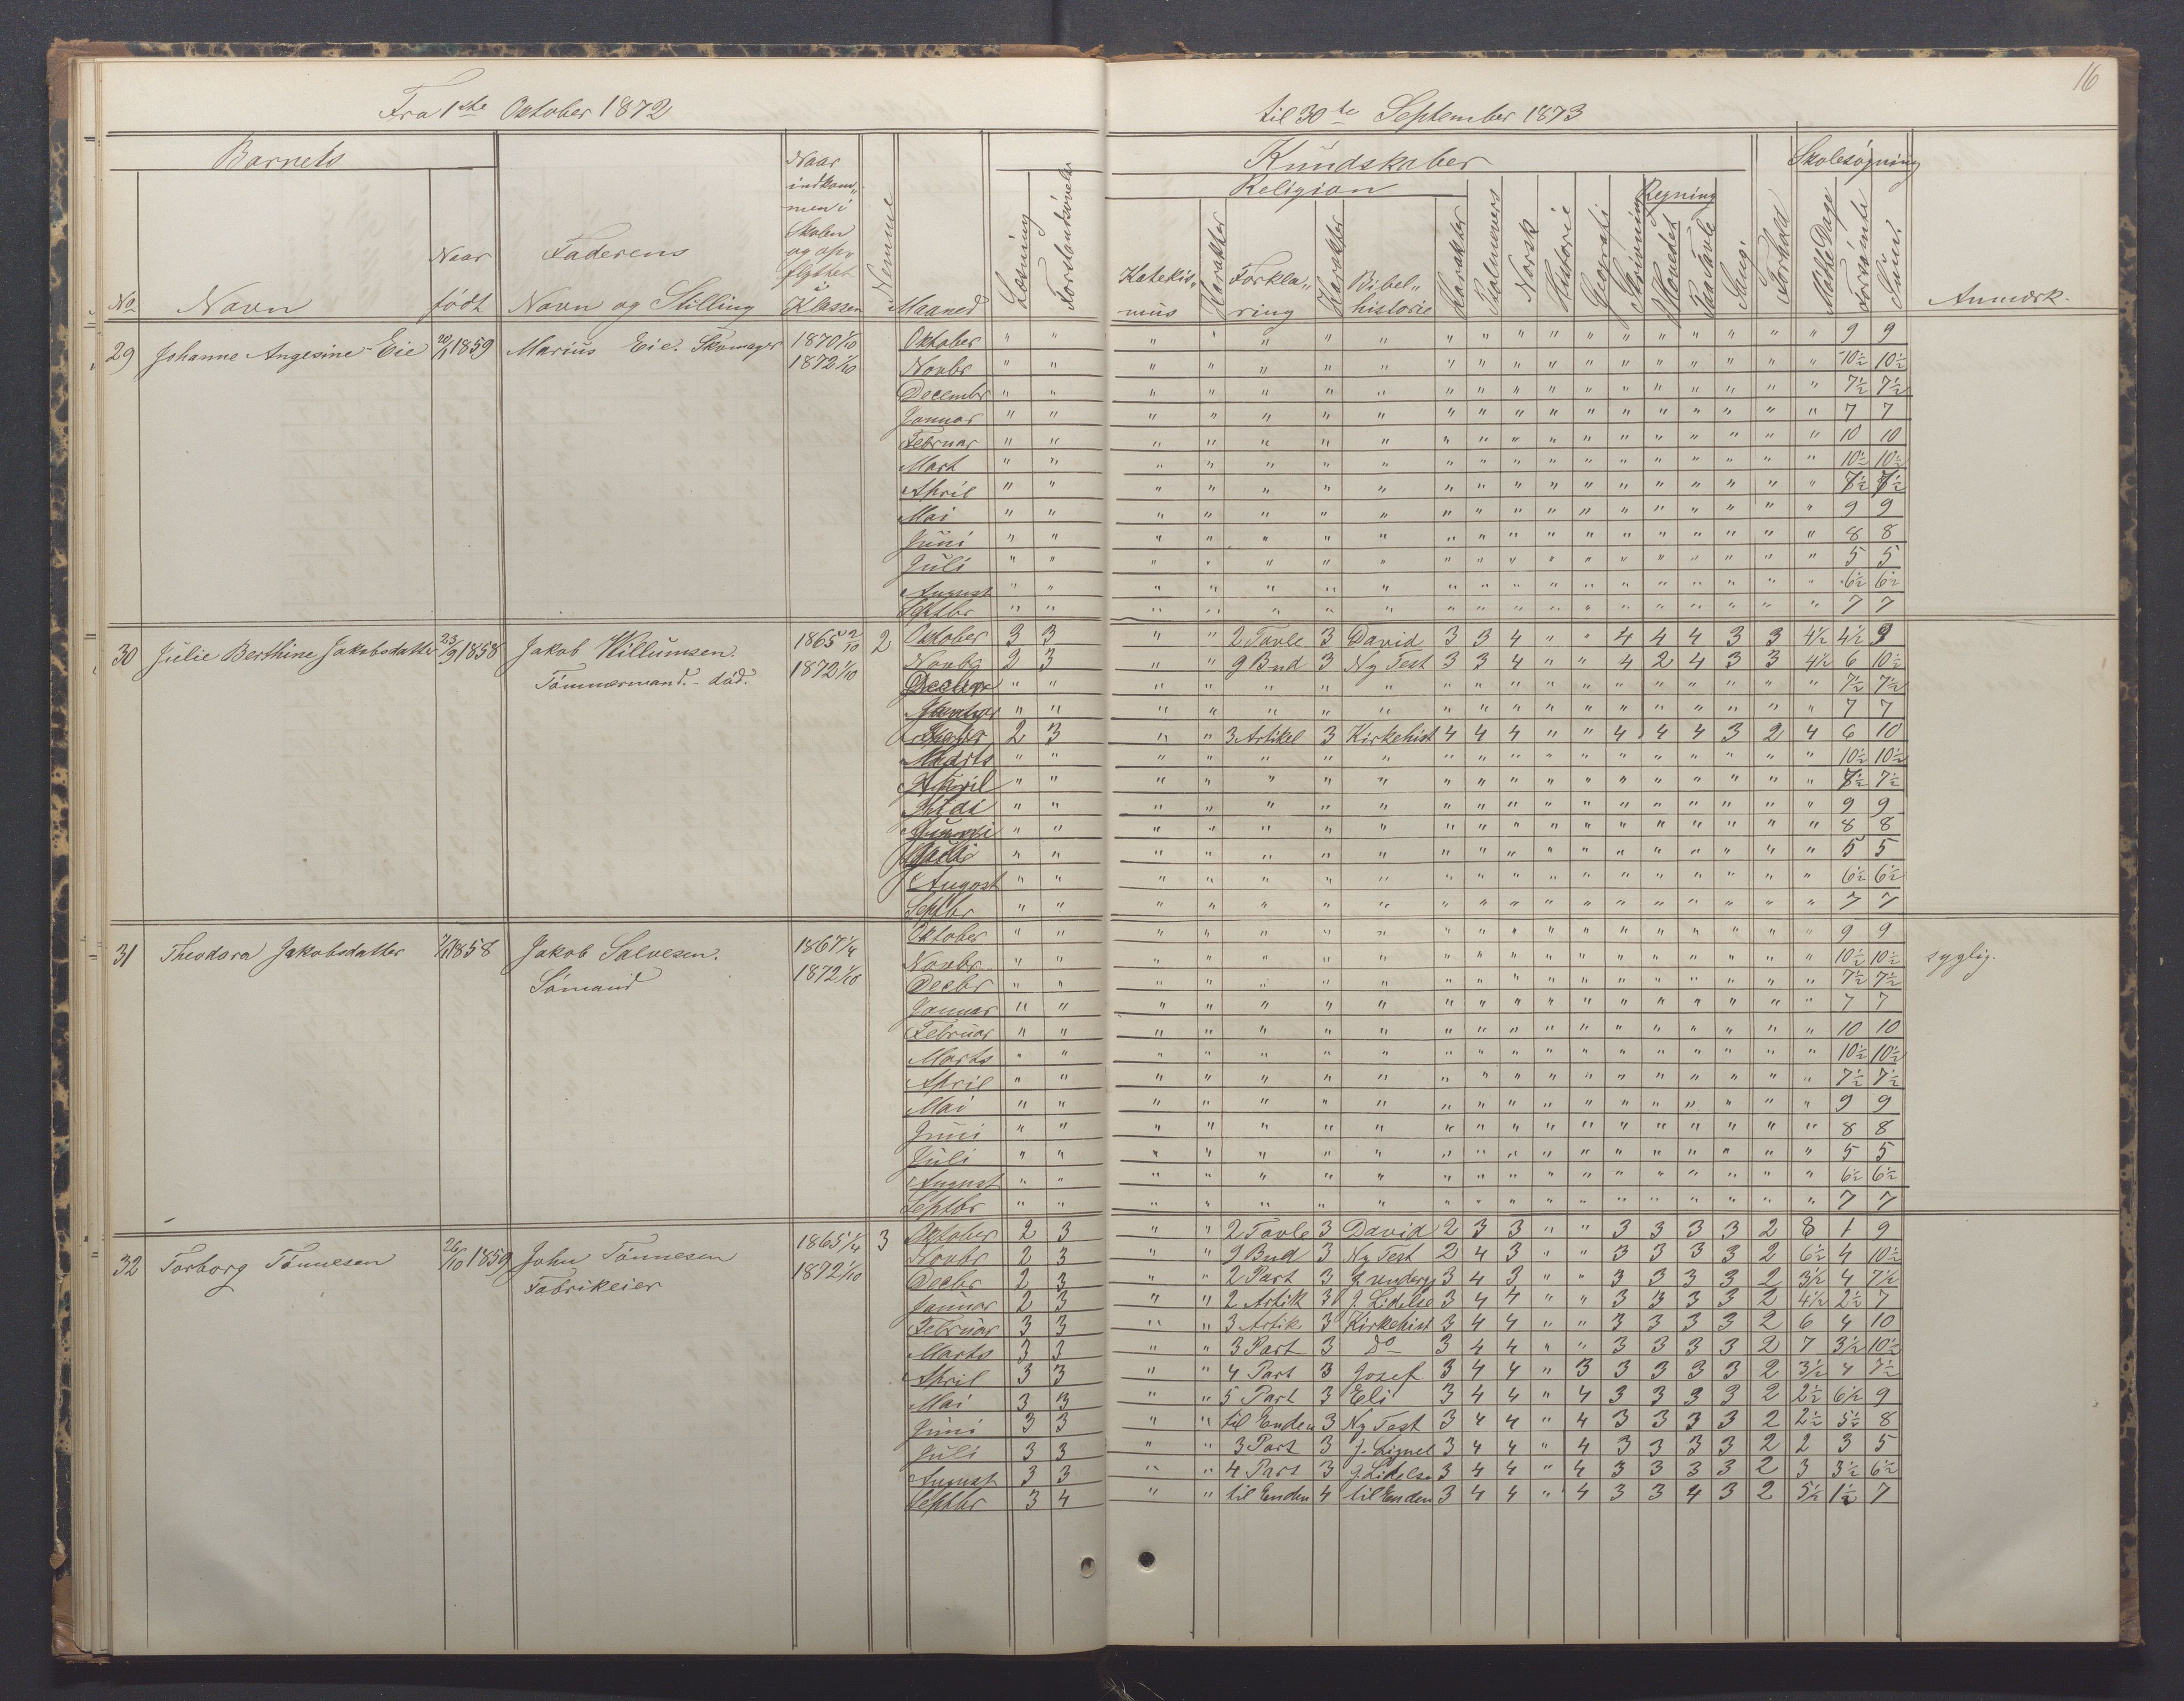 16
Fra 1ste October 1872 til 30te September 1873
Barnets Kundskaber Skolesøgning
Religion Regning
No Navn Naar født Faderens Navn og Stilling Naar indkommen i Skolen og opflyttet i Klassen Nemme Maaned Læsning Forstandsøvelse Katekismus Karakter Forklaring Karakter Bibelhistorie Karakter Psalmevers Norsk Historie Geografi Skrivning Hovedet Paa Tavle Sang Forhold Mødte Dage Forsømte Sum. Anmærk.
29 Johanne Angesine Eie 1859 Marius Eie. Skomager 1870 1/10 Oktober " " " " " " " " " " " " " " " " " " 9 9
1872 1/10 Novbr " " " " " " " " " " " " " " " " " " 10½ 10½
Decembr " " " " " " " " " " " " " " " " " " 7½ 7½
Januar " " " " " " " " " " " " " " " " " " 7 7
Februar " " " " " " " " " " " " " " " " " " 10 10
Mart " " " " " " " " " " " " " " " " " " 10½ 10½
April " " " " " " " " " " " " " " " " " " 7½ 7½
Mai " " " " " " " " " " " " " " " " " " 9 9
Juni " " " " " " " " " " " " " " " " " " 8 8
Juli " " " " " " " " " " " " " " " " " " 5 5
August " " " " " " " " " " " " " " " " " " 6½ 6½
Septbr " " " " " " " " " " " " " " " " " " 7 7
30 Julie Berthine Jakobsdatter 23/9 1858 Jakob Willumsen. 1865 2/10 2 Octobr 3 3 " " 2 Tavle 3 David 3 3 4 " " 4 4 4 3 3 4½ 4½ 9
Tömmermand. - död. 1872 1/10 Novbr 2 3 " " 9 Bud 3 Ny Test 3 3 4 " " 4 2 4 3 3 4½ 6 10½
" " " " " " " " " " " " " " " " " " 7½ 7½
" " " " " " " " " " " " " " " " " " 7 7
2 3 " " 3 Artikel 3 Kirkehist 4 4 4 " " 4 4 4 3 2 4 6 10
Marts " " " " " " " " " " " " " " " " " " 10½ 10½
April " " " " " " " " " " " " " " " " " " 7½ 7½
Mai " " " " " " " " " " " " " " " " " " 9 9
Juni " " " " " " " " " " " " " " " " " " 8 8
Juli " " " " " " " " " " " " " " " " " " 5 5
August " " " " " " " " " " " " " " " " " " 6½ 6½
Septbr " " " " " " " " " " " " " " " " " " 7 7
31 Theodora Jakobsdatter 1858 Jakob Salvesen. 1867 1/4 Oktober " " " " " " " " " " " " " " " " " " 9 9 syglig.
Sömand 1872 1/10 Novbr " " " " " " " " " " " " " " " " " " 10½ 10½
Decbr " " " " " " " " " " " " " " " " " " 7½ 7½
Januar " " " " " " " " " " " " " " " " " " 7 7
Februar " " " " " " " " " " " " " " " " " " 10 10
Marts " " " " " " " " " " " " " " " " " " 10½ 10½
April " " " " " " " " " " " " " " " " " " 7½ 7½
Mai " " " " " " " " " " " " " " " " " " 9 9
Juni " " " " " " " " " " " " " " " " " " 8 8
Juli " " " " " " " " " " " " " " " " " " 5 5
August " " " " " " " " " " " " " " " " " " 6½ 6½
Septbr " " " " " " " " " " " " " " " " " " 7 7
32 Torborg Tönnesen 26/10 1859 John Tönnesen 1865 1/4 3 Oktober 2 3 " " 2 Tavle 3 David 2 3 3 " " 3 3 3 3 2 8 1 9
Fabrikeier 1872 1/10 Novbr 2 3 " " 9 Bud 3 Ny Test 2 4 3 " " 3 3 3 3 2 6½ 4 10½
Decbr 2 3 " " 2 Part 3 J. undergj 3 4 3 " " 3 3 3 3 2 3½ 4 7½
Januar 2 3 " " 2 Artik 3 J. Lidelse 3 4 4 " " 3 3 3 3 2 4½ 2½ 7
Februar 3 3 " " 3 Artik 3 Kirkehist 3 4 4 " " 3 3 3 3 2 6 4 10
Marts 3 3 " " 3 Part 3 do 3 4 4 " " 3 3 3 3 2 7 3½ 10½
April 3 3 " " 4 Part 3 Josef 3 4 4 " 3 3 3 3 3 2 3½ 4 7½
Mai 3 3 " " 5 Part 3 Eli 3 4 4 " 4 3 3 3 3 2 2½ 6½ 9
Juni 3 3 " " til Enden 3 Ny Test 3 4 4 " 4 3 3 3 3 2 2½ 5½ 8
Juli 3 3 " " 3 Part 3 J. Lignel 3 4 4 " 4 3 3 3 3 2 2 3 5
August 3 3 " " 4 Part 3 J. Lidelse 3 4 4 " 4 3 3 3 3 2 3 3½ 6½
Septbr 3 4 " " til Enden 4 til Enden 3 4 4 " 4 3 3 4 3 2 5½ 1½ 7